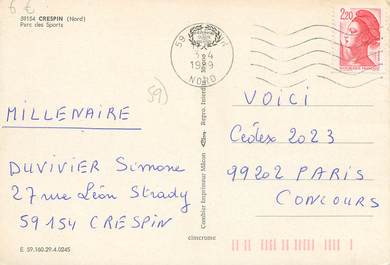 6 €
59154 CRESPIN (Nord)
Parc des Sports
59
4
1989
NORD
2,20
59)
MILLENAIRE
DUVIVIER Simone
27 rue Léon Strady
59154 CRESPIN
E 59.160.29.4.0245
Combier Imprimeur Mâcon
Repro. Interd.
cimcrome
VOICI
Cédex 2023
99202 PARIS
CONCOURS